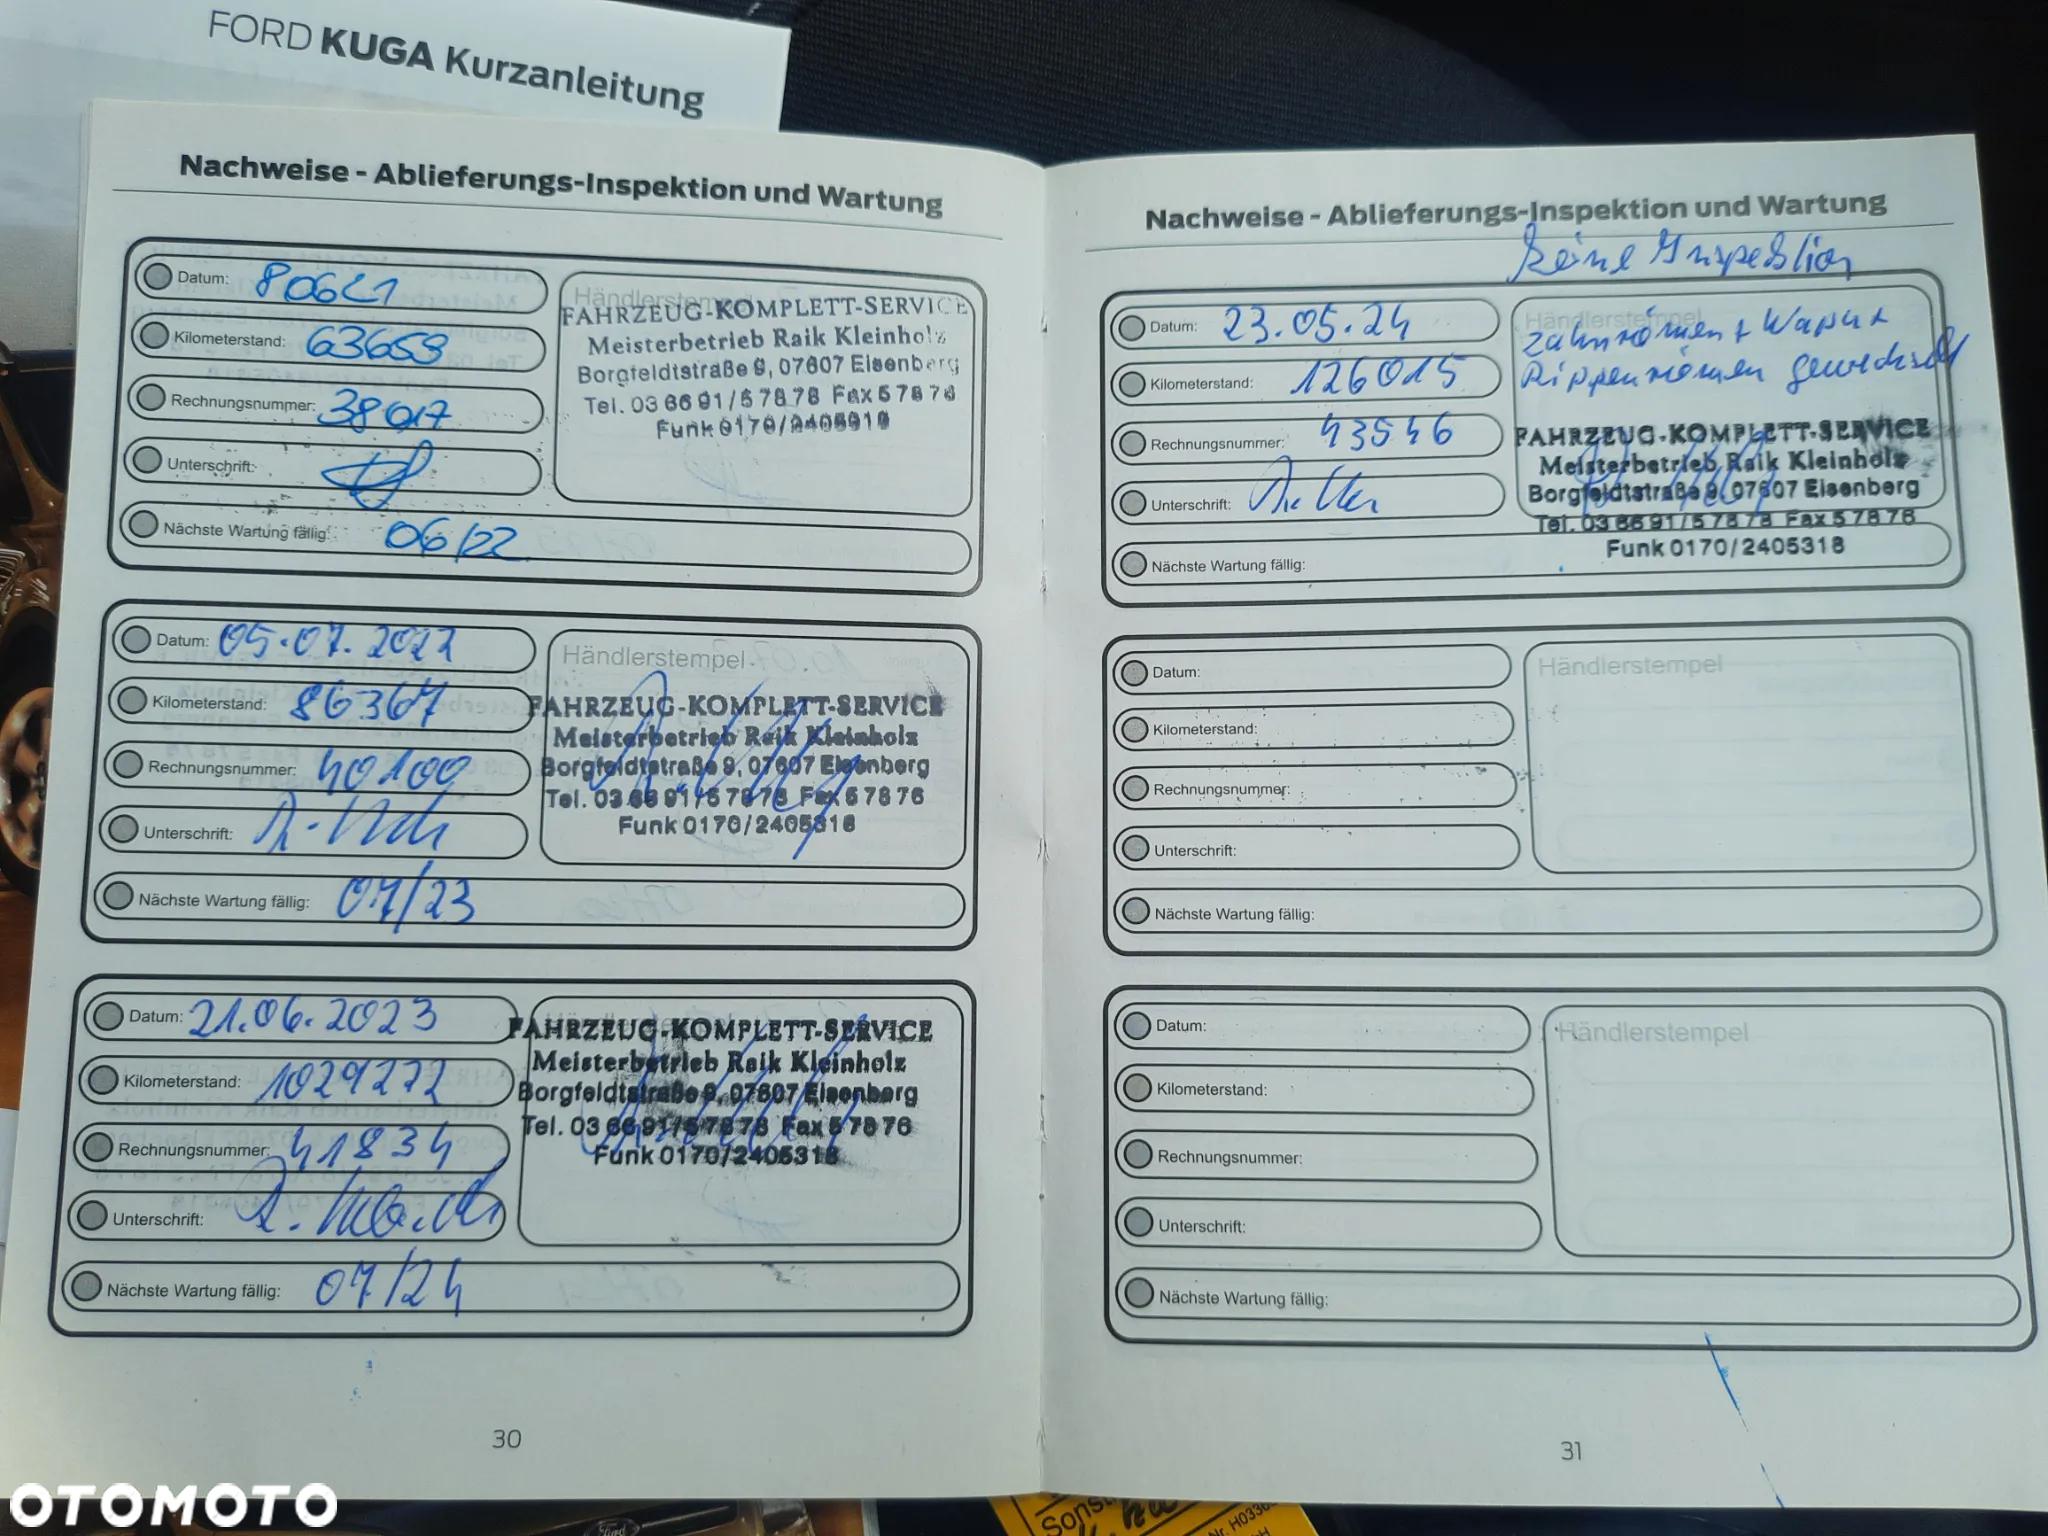 FORD KUGA Kurzanleitung
Nachweise - Ablieferungs-Inspektion und Wartung
Datum: 80621
Kilometerstand: 63653
Rechnungsnummer: 38017
Unterschrift:
Nächste Wartung fällig: 06/22
Händlerstempel
FAHRZEUG-KOMPLETT-SERVICE
Meisterbetrieb Raik Kleinholz
Borgfeldtstraße 9, 07607 Eisenberg
Tel. 03 66 91 / 5 78 78 Fax 5 78 76
Funk 0170/2405318
Datum: 05.07.2022
Kilometerstand: 86367
Rechnungsnummer: 40100
Unterschrift:
Nächste Wartung fällig: 07/23
Händlerstempel
FAHRZEUG-KOMPLETT-SERVICE
Meisterbetrieb Raik Kleinholz
Borgfeldtstraße 9, 07607 Eisenberg
Tel. 03 66 91 / 5 78 78 Fax 5 78 76
Funk 0170/2405318
Datum: 21.06.2023
Kilometerstand: 1029272
Rechnungsnummer: 41834
Unterschrift:
Nächste Wartung fällig: 07/24
FAHRZEUG-KOMPLETT-SERVICE
Meisterbetrieb Raik Kleinholz
Borgfeldtstraße 9, 07607 Eisenberg
Tel. 03 66 91 / 5 78 78 Fax 5 78 76
Funk 0170/2405318
30
Nachweise - Ablieferungs-Inspektion und Wartung
keine Inspektion
Datum: 23.05.24
Kilometerstand: 126015
Rechnungsnummer: 43546
Unterschrift:
Nächste Wartung fällig:
Händlerstempel
Zahnriemen + Wapu +
Rippenriemen gewechselt
FAHRZEUG-KOMPLETT-SERVICE
Meisterbetrieb Raik Kleinholz
Borgfeldtstraße 9, 07607 Eisenberg
Tel. 03 66 91 / 5 78 78 Fax 5 78 76
Funk 0170/2405318
Datum:
Kilometerstand:
Rechnungsnummer:
Unterschrift:
Nächste Wartung fällig:
Händlerstempel
Datum:
Kilometerstand:
Rechnungsnummer:
Unterschrift:
Nächste Wartung fällig:
Händlerstempel
31
OTOMOTO